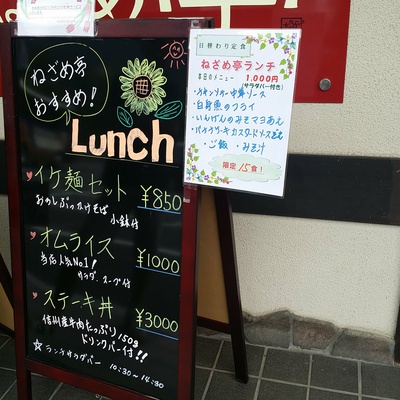 ねざめ亭
おすすめ!
Lunch
イケ麺セット ¥850
小鉢付
オムライス ¥1000
当店人気No1!
サラダ、スープ付
ステーキ丼 ¥3000
信州産牛肉たっぷり150g
ドリンクバー付!!
☆ランチサラダバー
10:30~14:30
日替わり定食
ねざめ亭ランチ
本日のメニュー 1,000円
(サラダバー付き)
・チキンソテー中華ソース
・白身魚のフライ
・いんげんのみそマヨあえ
・ご飯・みそ汁
限定15食!